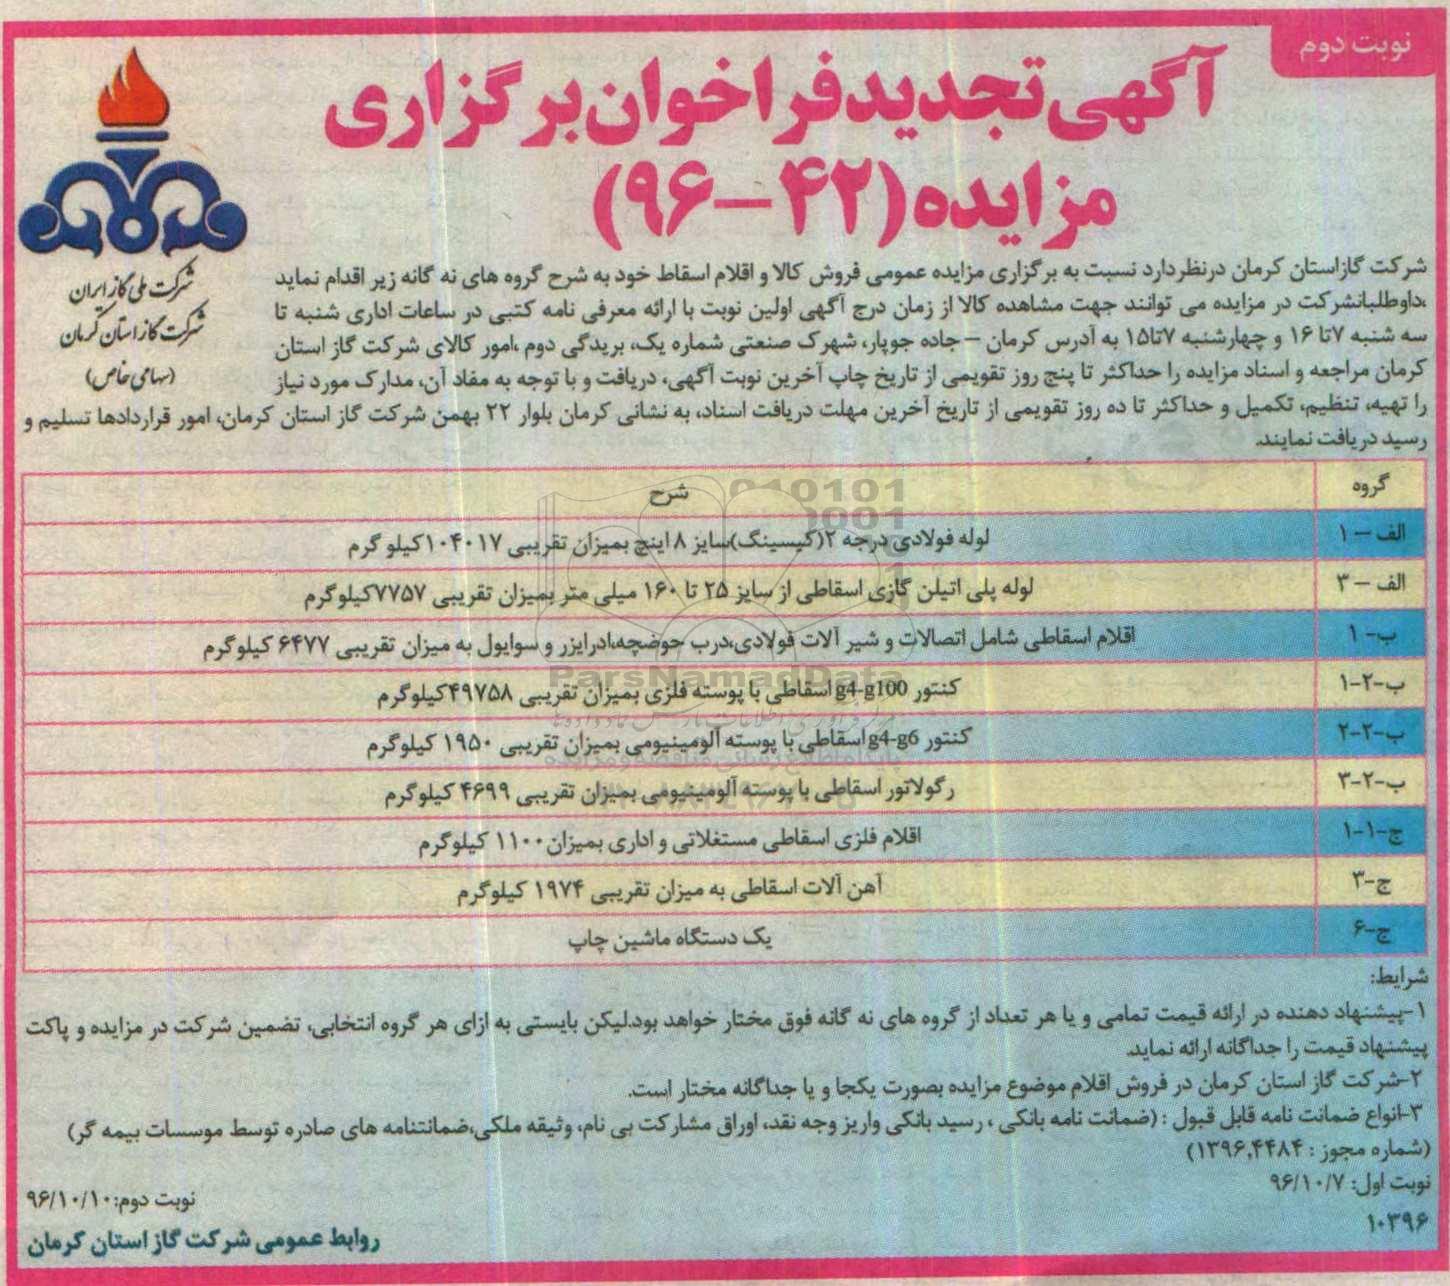 نوبت دوم
آگهی تجدید فراخوان برگزاری
مزایده (۴۲-۹۶)
شرکت ملی گاز ایران
شرکت گاز استان کرمان
(سهامی خاص)
شرکت گازاستان کرمان درنظردارد نسبت به برگزاری مزایده عمومی فروش کالا و اقلام اسقاط خود به شرح گروه های نه گانه زیر اقدام نماید
،داوطلبانشرکت در مزایده می توانند جهت مشاهده کالا از زمان درج آگهی اولین نوبت با ارائه معرفی نامه کتبی در ساعات اداری شنبه تا
سه شنبه ۷تا ۱۶ و چهارشنبه ۷تا۱۵ به آدرس کرمان – جاده جوپار، شهرک صنعتی شماره یک، بریدگی دوم ،امور کالای شرکت گاز استان
کرمان مراجعه و اسناد مزایده را حداکثر تا پنج روز تقویمی از تاریخ چاپ آخرین نوبت آگهی، دریافت و با توجه به مفاد آن، مدارک مورد نیاز
را تهیه، تنظیم، تکمیل و حداکثر تا ده روز تقویمی از تاریخ آخرین مهلت دریافت اسناد، به نشانی کرمان بلوار ۲۲ بهمن شرکت گاز استان کرمان، امور قراردادها تسلیم و
رسید دریافت نمایند.
گروه شرح
الف – ۱ لوله فولادی درجه ۲(کیسینگ)سایز ۸ اینچ بمیزان تقریبی ۱۰۴۰۱۷کیلو گرم
الف – ۳ لوله پلی اتیلن گازی اسقاطی از سایز ۲۵ تا ۱۶۰ میلی متر بمیزان تقریبی ۷۷۵۷کیلوگرم
ب- ۱ اقلام اسقاطی شامل اتصالات و شیر آلات فولادی،درب حوضچه،ادرایزر و سوایول به میزان تقریبی ۶۴۷۷ کیلوگرم
ب-۲-۱ کنتور g4-g100 اسقاطی با پوسته فلزی بمیزان تقریبی ۴۹۷۵۸کیلوگرم
ب-۲-۲ کنتور g4-g6 اسقاطی با پوسته آلومینیومی بمیزان تقریبی ۱۹۵۰ کیلوگرم
ب-۲-۳ رگولاتور اسقاطی با پوسته آلومینیومی بمیزان تقریبی ۴۶۹۹ کیلوگرم
ج-۱-۱ اقلام فلزی اسقاطی مستغلاتی و اداری بمیزان۱۱۰۰ کیلوگرم
ج-۳ آهن آلات اسقاطی به میزان تقریبی ۱۹۷۴ کیلوگرم
ج-۶ یک دستگاه ماشین چاپ
ParsNamadData
شرایط:
۱-پیشنهاد دهنده در ارائه قیمت تمامی و یا هر تعداد از گروه های نه گانه فوق مختار خواهد بود.لیکن بایستی به ازای هر گروه انتخابی، تضمین شرکت در مزایده و پاکت
پیشنهاد قیمت را جداگانه ارائه نماید.
۲-شرکت گاز استان کرمان در فروش اقلام موضوع مزایده بصورت یکجا و یا جداگانه مختار است.
۳-انواع ضمانت نامه قابل قبول : (ضمانت نامه بانکی ، رسید بانکی واریز وجه نقد، اوراق مشارکت بی نام، وثیقه ملکی،ضمانتنامه های صادره توسط موسسات بیمه گر)
(شماره مجوز : ۱۳۹۶,۴۴۸۴)
نوبت اول: ۹۶/۱۰/۷
نوبت دوم:۹۶/۱۰/۱۰
۱۰۳۹۶
روابط عمومی شرکت گاز استان کرمان